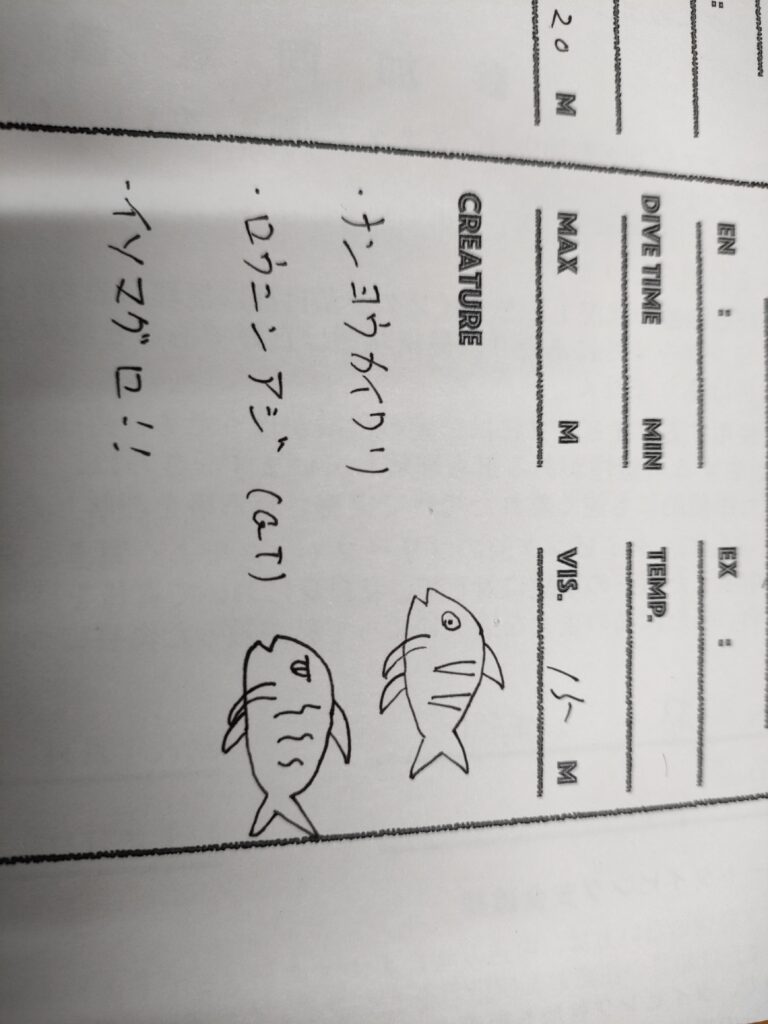 :
20 M
EN : EX :
DIVE TIME MIN TEMP.
MAX M VIS. 15 M
CREATURE
・ナンヨウカイワリ
・ロウニンアジ (GT)
・イソマグロ!!